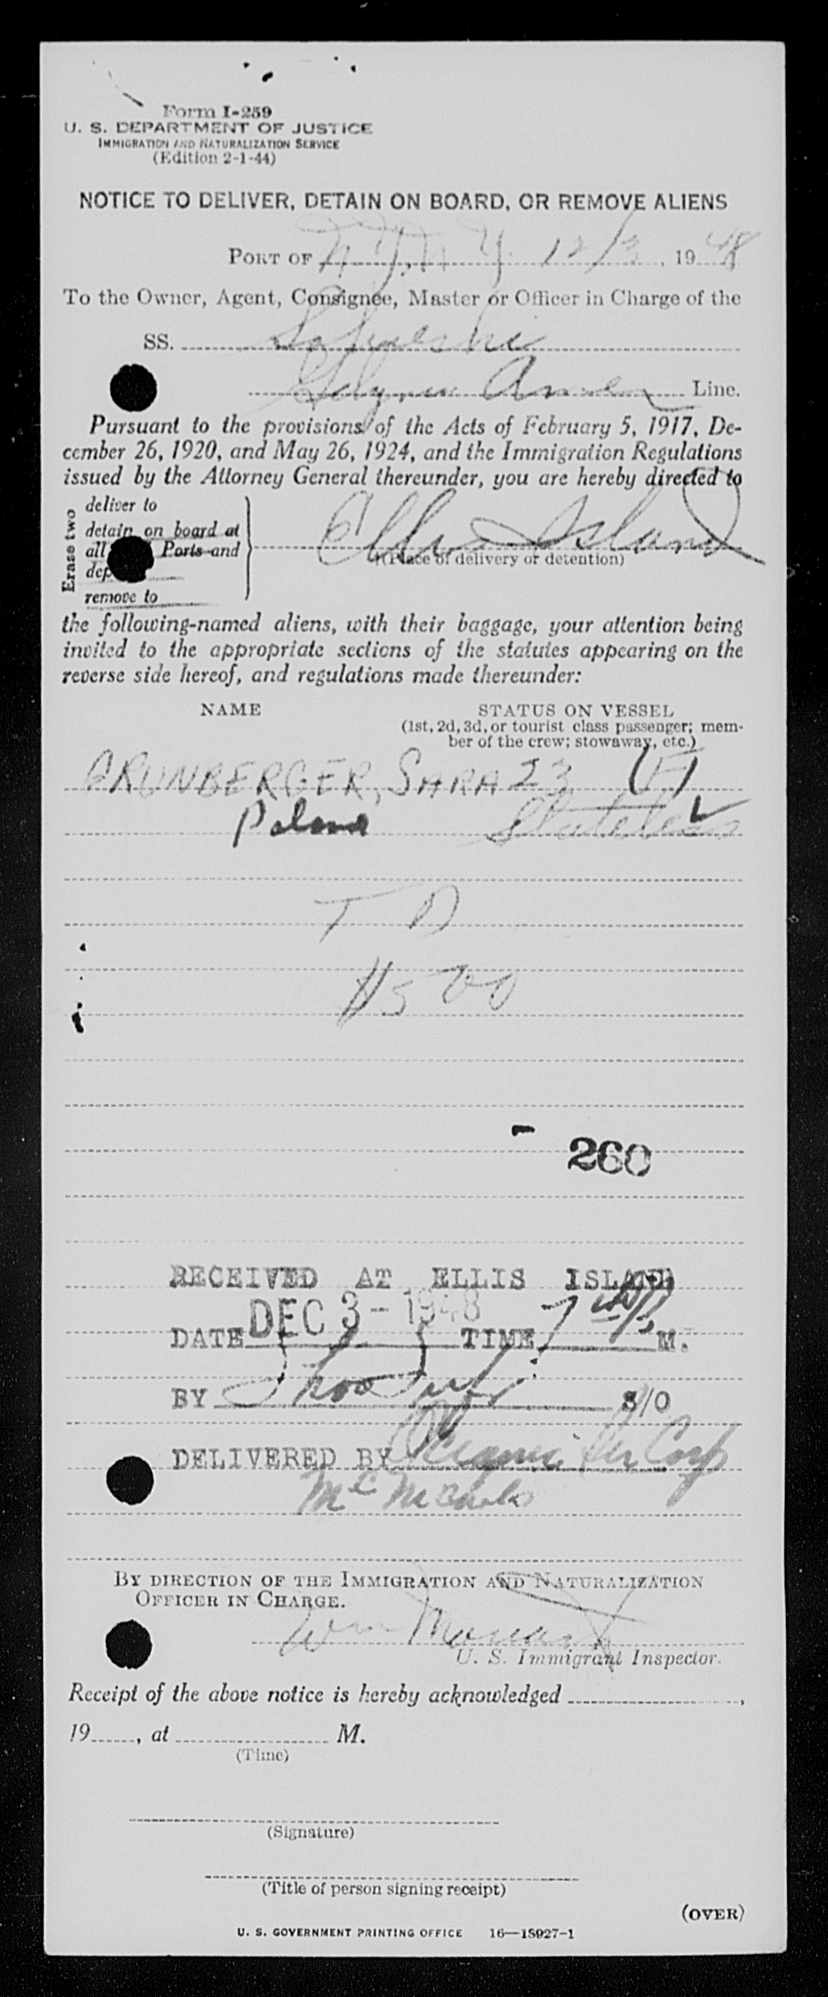 Form I-259
U. S. DEPARTMENT OF JUSTICE
IMMIGRATION AND NATURALIZATION SERVICE
(Edition 2-1-44)
NOTICE TO DELIVER, DETAIN ON BOARD, OR REMOVE ALIENS
PORT OF N.Y. N.Y. 12/3, 1948
To the Owner, Agent, Consignee, Master or Officer in Charge of the
SS.
Gdynia Amer Line.
Pursuant to the provisions of the Acts of February 5, 1917, De-
cember 26, 1920, and May 26, 1924, and the Immigration Regulations
issued by the Attorney General thereunder, you are hereby directed to
Erase two
deliver to
detain on board at
all Ports and
dep
remove to
Ellis Island
(Place of delivery or detention)
the following-named aliens, with their baggage, your attention being
invited to the appropriate sections of the statutes appearing on the
reverse side hereof, and regulations made thereunder:
NAME STATUS ON VESSEL
(1st, 2d, 3d, or tourist class passenger; mem-
ber of the crew; stowaway, etc.)
GRUNBERGER, SARA 23
Poland Stateless
T D
$500
260
RECEIVED AT ELLIS ISLAND
DATE DEC 3 - 1948 TIME 7 M.
BY Thos S/O
DELIVERED BY Corp
BY DIRECTION OF THE IMMIGRATION AND NATURALIZATION
OFFICER IN CHARGE.
Wm
U. S. Immigrant Inspector.
Receipt of the above notice is hereby acknowledged ,
19 , at M.
(Time)
(Signature)
(Title of person signing receipt)
(OVER)
U. S. GOVERNMENT PRINTING OFFICE 16—18927-1